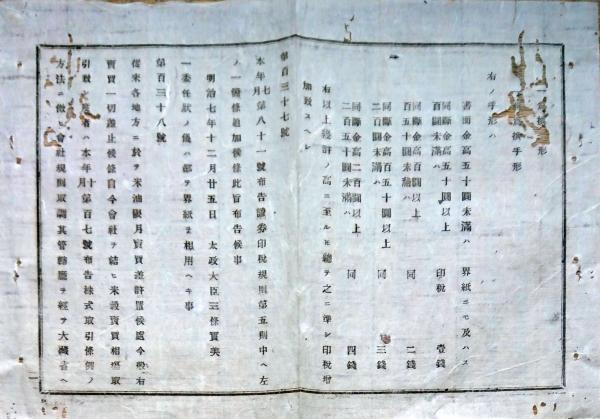 手形
手形
右ノ手形ハ
書面金高五十圓未滿ハ 界紙ニモ及ハス
同斷金高五十圓以上
百圓未滿ハ 印税 壹錢
同斷金高百圓以上
百五十圓未滿ハ 同 二錢
同斷金高百五十圓以上
二百圓未滿ハ 同 三錢
同斷金高二百圓以上
二百五十圓未滿ハ 同 四錢
右以上幾許ノ高ニ至ルモ總テ之ニ準シ印税增
加致スヘシ
第百三十七號
本年七月第八十一號布告證券印税規則第五則中ヘ左
ノ一條追加候條此旨布告候事
明治七年十二月廿五日 太政大臣三條實美
一委任狀ノ儀ハ都テ界紙ヲ相用ヘキ事
第百三十八號
從來各地方ニ於テ米油限月賣買差許置候處今般右
賣買一切差止候條自今會社ヲ結ヒ米穀賣買相場取
引致 者 本年十月第百七號布告株式取引條例ノ
方法ニ倣ヒ會社規則取調其管轄廳ヲ經テ大藏省ヘ